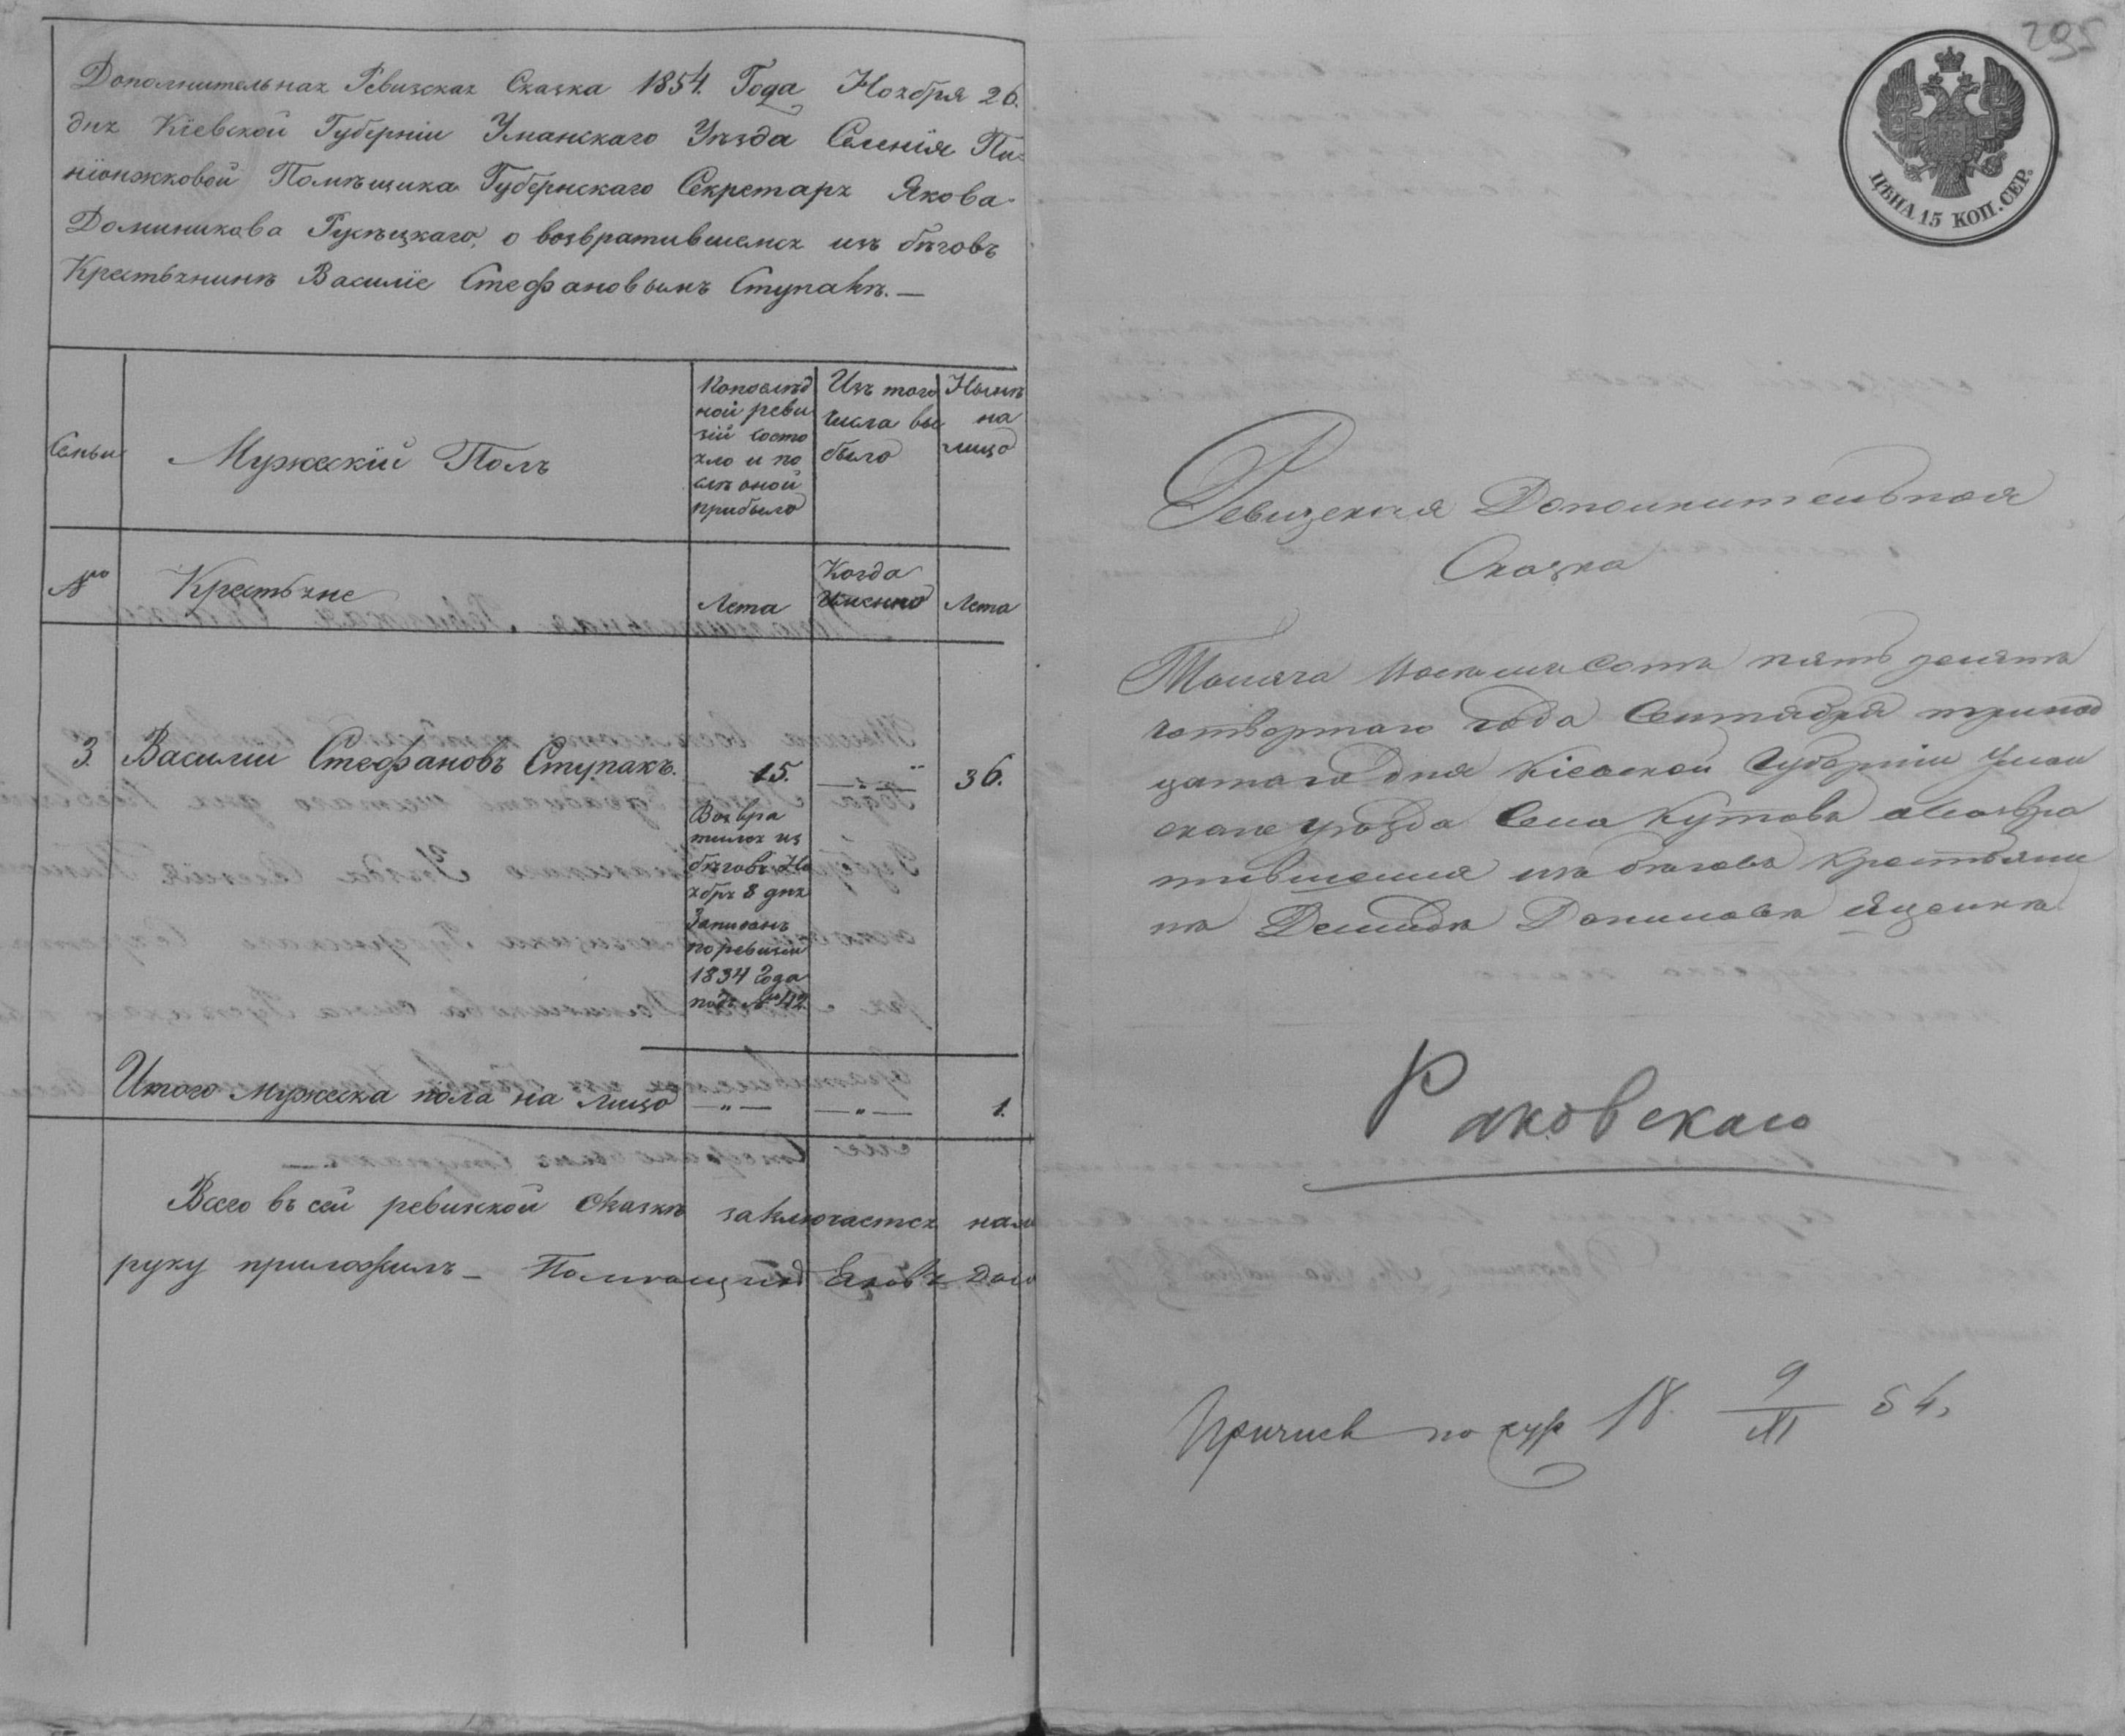 Дополнительная Ревизская Сказка 1854. Года Ноября 26.
дня Кіевской Губерніи Уманскаго Уѣзда Селенія Пи=
ніонжковой Помѣщика Губернскаго Секретаря Якова
Доминикова Рукѣцкаго, о возвратившемся изъ бѣговъ
Крестьянинѣ Василіе Стефановымъ Ступакѣ.—
Семьи
Мужескій Полъ
Копослѣд
ной реви
зіи состо
яло и по
слѣ оной
прибыло
Изъ того
числа вы
было
Нынѣ
на
лицо
№
Крестьяне
Лета
Когда
Именно
Лета
3.
Василий Стефановъ Ступакъ.
15.
36.
Возвра
тился из
бѣговъ Но
ября 8 дня
Записанъ
по ревизіи
1834 Года
подъ № 42.
Итого мужеска пола на лицо — „ — — „ — 1.
Всего въ сей ревизкой сказкѣ заключается
руку приложилъ — Помѣщикъ Яковъ
295
ЦѢНА 15 КОП. СЕР.
Ревизская Дополнительная
Сказка
Тысяча Восемь Сотъ пять десятъ
четвертаго года Сентября тринад
цатаго дня Кіевской Губерніи Уман
скаго уѣзда Села Кутова о возвра
тившемся изъ бѣговъ крестьяни
нѣ Демидѣ Даниловѣ Яценкѣ
Раковскаго
Причисл по жур 18 9/XI 54.